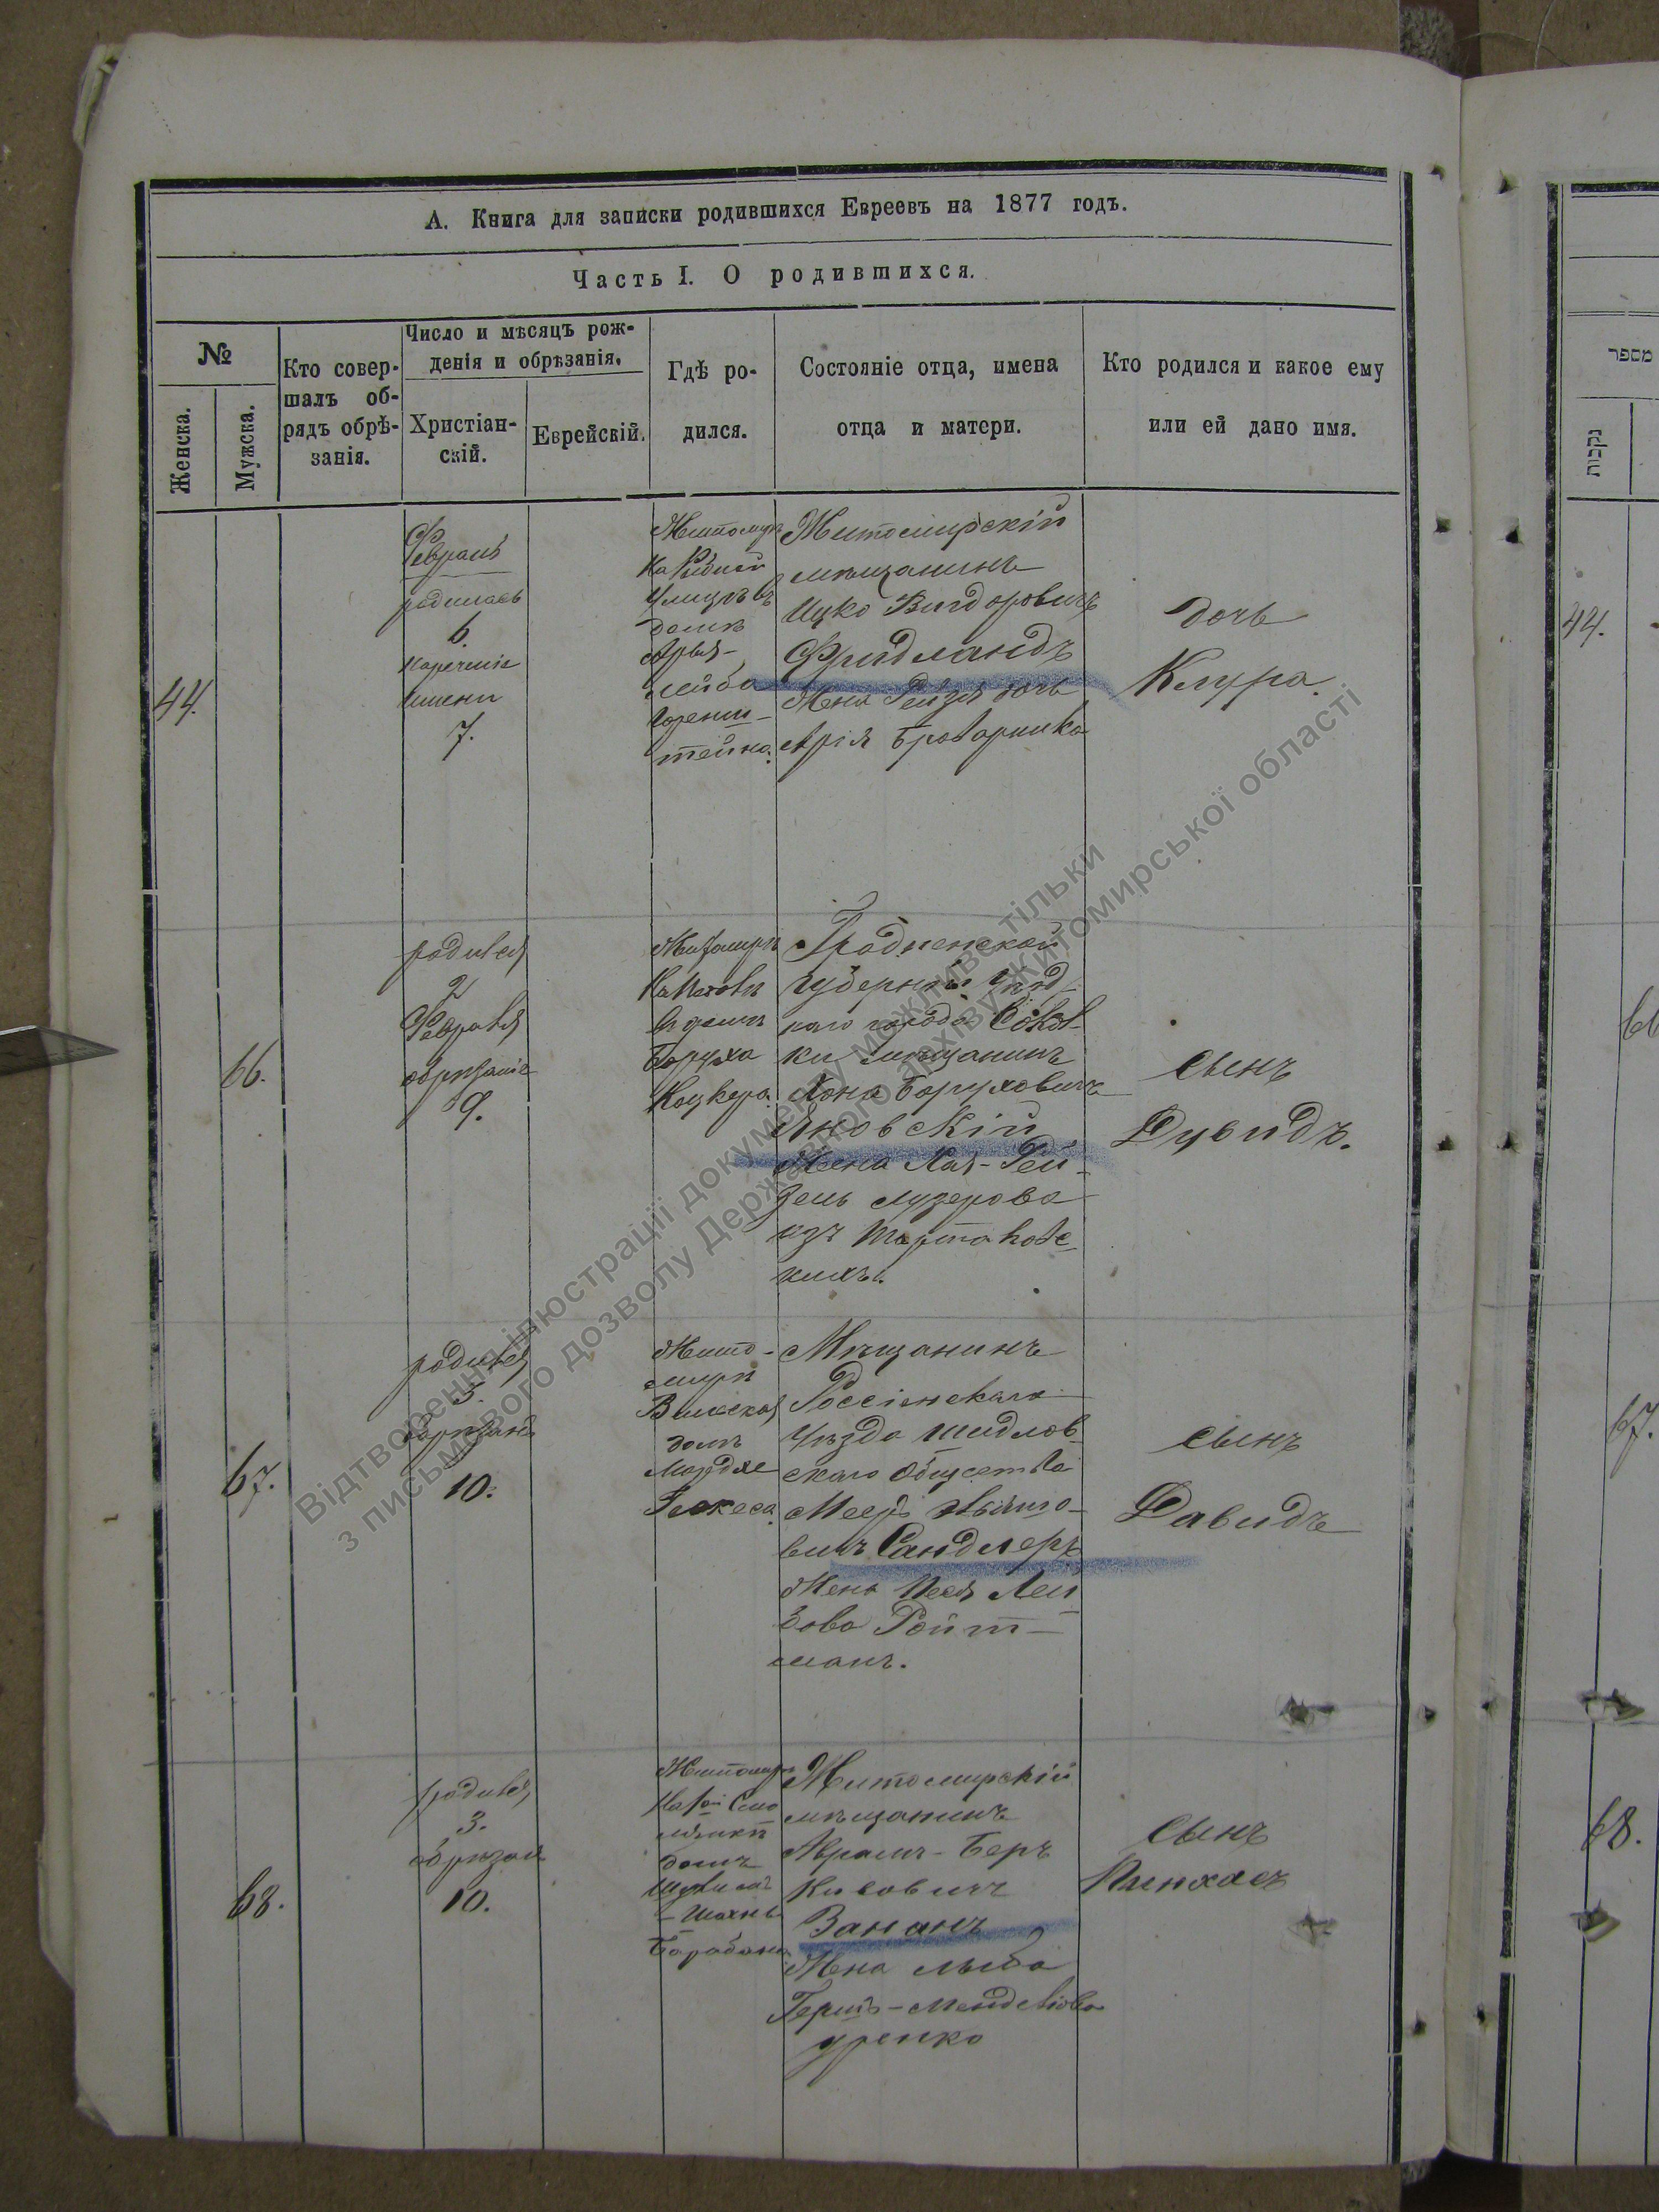 А. Книга для записки родившихся Евреевъ на 1877 годъ.
Часть I. О родившихся.
№
Женска.
Мужска.
Кто совер-
шалъ об-
рядъ обрѣ-
занія.
Число и мѣсяцъ рож-
денія и обрѣзанія.
Христіан-
скій.
Еврейскій.
Гдѣ ро-
дился.
Состояніе отца, имена
отца и матери.
Кто родился и какое ему
или ей дано имя.
44.
Февраль
родилась
6.
наречение
имени
7.
Житомиръ
На
Улицѣ въ
домѣ
Арья-
Лейба
Горенш-
тейна.
Житомирскій
мѣщанинъ
Ицко Вигдоровичъ
Фридландъ
Жена Рейзя дочь
Арія Броварника
дочь
Клура.
66.
родился
2
Февраля
обрѣзаніе
9.
Житомиръ
въ домѣ
Боруха
Коцкера.
Гродненской
губерніи Уѣзд-
наго города Сокол-
ки мѣщанинъ
Хона Боруховичъ
Яновскій
Жена Хая-Рей-
зель Лузерова
изъ Тартаковс-
кихъ.
сынъ
Дувидъ.
67.
родился
3.
обрѣзанъ
10.
Жито-
миръ
Вильская
домъ
Мордхе
Мѣщанинъ
Россіенскаго
Уѣзда Шидлов-
скаго Общества
Сандлеръ
Жена Песя Лей
зова Ройт-
манъ.
сынъ
Давидъ
68.
родился
3.
обрѣзан
10.
Житомиръ
домъ
Барабана
Житомирскій
мѣщанинъ
Аврамъ-Беръ
Кивовичъ
Ванань
Жена Люба
Гершъ-Менделіова
Уренко
сынъ
Пинхасъ
מספר
נקבות
44.
66
67.
68.
Відтворення ілюстрації документу можливе тільки
з письмового дозволу Державного архіву Житомирської області